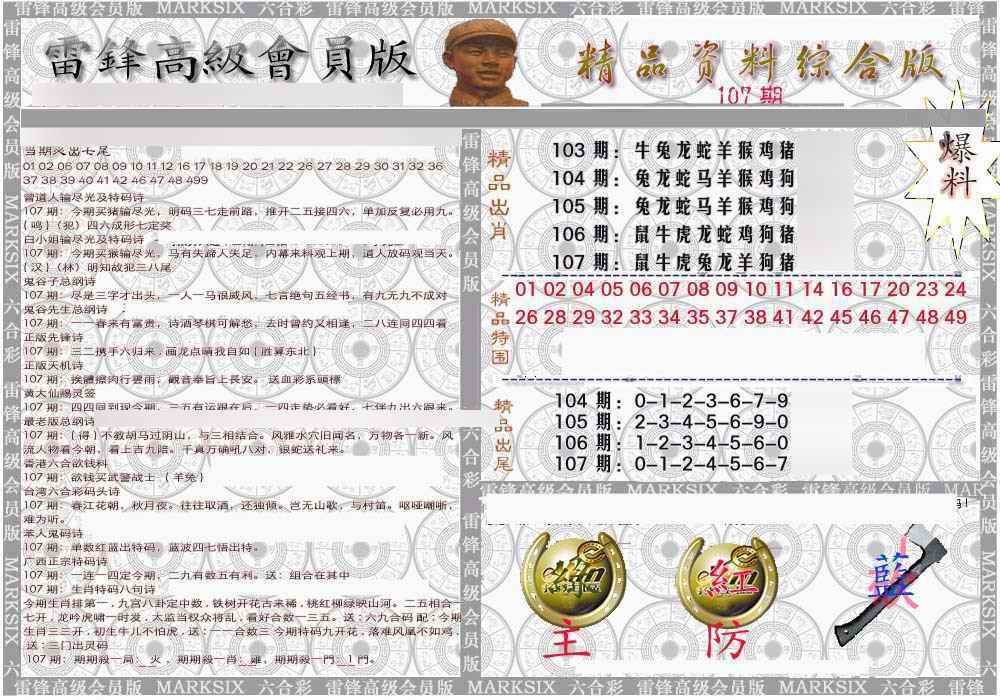 雷锋高级会员版 MARKSIX 六合彩 雷锋高级会员版 MARKSIX 六合彩 雷锋高级会员版 MARKSIX 六合彩 雷锋
雷鋒高級會員版
精品资料综合版
107期
爆料
01 02 06 07 08 09 10 11 12 16 17 18 19 20 21 22 26 27 28 29 30 31 32 36
37 38 39 40 41 42 46 47 48 499
曾道人输尽光及特码诗
107期：今期买猪输尽光，明码三七走前路，推开二五接四六，单加反复必用九。
{鸣}（犯）四六成形七定奖
白小姐输尽光及特码诗
107期：今期买猴输尽光，马有失蹄人失足，内幕来料观上期，道人放码观当天。
{汉}（林）明知故犯三八尾
鬼谷子总纲诗
107期：尽是三字才出头，一人一马很威风，七言绝句五经书，有九无九不成对
鬼谷先生总纲诗
107期：一一春来有富贵，诗酒琴棋可解愁，去时曾约又相逢，二八连同四四看
正版先锋诗
107期：三二携手六归来．画龙点睛我自如{胜算东北}
正版天机诗
107期：挨體擦肉行雲雨，觀音奉旨上長安。送血彩系頭標
黄大仙赐灵签
107期：四四同到现今期，三五有运跟在后，一四走势必看好，七伴九出六跟来。
最老版总纲诗
107期：{得}不教胡马过阴山，与三相结合。风雅水穴旧闻名，万物各一新。风
流人物看今朝，看上吉九陪。千真万确吼八对，银蛇送礼来。
香港六合欲钱料
107期：欲钱买武警战士 {羊兔}
台湾六合彩码头诗
107期：春江花朝，秋月夜。往往取酒，还独倾。岂无山歌，与村笛。呕哑嘲哳，
难为听。
本人鬼码诗
107期：单数红蓝出特码，蓝波四七悟出特。
广西正宗特码诗
107期：一连一四定今期，二九合数五有利。送：组合在其中
107期：生肖特码八句诗
今期生肖排第一．九宫八卦定中数．铁树开花古来稀．桃红柳绿映山河。二五相合
七开．龙吟虎啸一时发．太监当权众将乱．看好合数一三五。送：六九合码 配：今期
生肖三三开．初生牛儿不怕虎．送：一一合数三 今期特码九开花．落难凤凰不如鸡．
送：三门出灵码
107期：期期殺一局：火．期期殺一肖：雞．期期殺一門：1門。
精品出肖
103 期：牛兔龙蛇羊猴鸡猪
104 期：兔龙蛇马羊猴鸡狗
105 期：兔龙蛇马羊猴鸡狗
106 期：鼠牛虎龙蛇鸡狗猪
107 期：鼠牛虎兔龙羊狗猪
精品特围
01 02 04 05 06 07 08 09 10 11 14 16 17 20 23 24
26 28 29 32 33 34 35 37 38 41 42 45 46 47 48 49
精品出尾
104 期：0-1-2-3-6-7-9
105 期：2-3-4-5-6-9-0
106 期：1-2-3-4-5-6-0
107 期：0-1-2-4-5-6-7
雷锋高级会员版 MARKSIX 六合彩 雷锋高级会员版
綠
紅
藍
主
防
雷锋高级会员版 MARKSIX 六合彩 雷锋高级会员版 MARKSIX 六合彩 雷锋高级会员版 MARKSIX 六合彩 雷锋